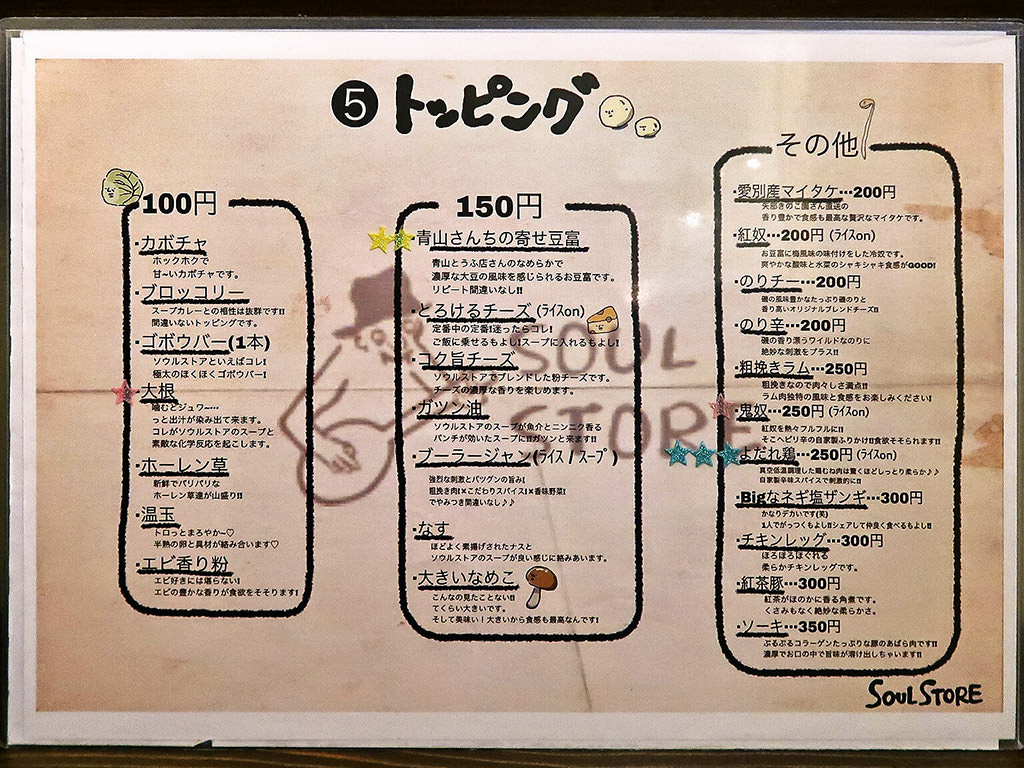 ⑤トッピング
100円
・カボチャ
ホックホクで
甘〜いカボチャです。
・ブロッコリー
スープカレーとの相性は抜群です!!
間違いないトッピングです。
・ゴボウバー(1本)
ソウルストアといえばコレ!
極太のほくほくゴボウバー!
・大根
噛むとジュワ〜…
っと出汁が染み出て来ます。
コレがソウルストアのスープと
素敵な化学反応を起こします。
・ホーレン草
新鮮でパリパリな
ホーレン草達が山盛り!!
・温玉
トロっとまろやか~♡
半熟の卵と具材が絡み合います♡
・エビ香り粉
エビ好きには堪らない!
エビの豊かな香りが食欲をそそります!
150円
・青山さんちの寄せ豆富
青山とうふ店さんのなめらかで
濃厚な大豆の風味を感じられるお豆富です。
リピート間違いなし!!
・とろけるチーズ (ライスon)
定番中の定番!迷ったらコレ!
ご飯に乗せるもよし!スープに入れるもよし!
・コク旨チーズ
ソウルストアでブレンドした粉チーズです。
チーズの濃厚な香りを楽しめます。
・ガツン油
ソウルストアのスープが魚介とニンニク香る
パンチが効いたスープに!!ガツンと来ます!!
・ブーラージャン(ライス / スープ )
強烈な刺激とバツグンの旨み!
粗挽き肉!×こだわりスパイス!×香味野菜!
でやみつき間違いなし♪♪
・なす
ほどよく素揚げされたナスと
ソウルストアのスープが良い感じに絡みあいます。
・大きいなめこ
こんなの見たことない!!
てくらい大きいです。
そして美味い!大きいから食感も最高なんです!
その他
・愛別産マイタケ…200円
矢部きのこ園さん直送の
香り豊かで食感も最高な贅沢なマイタケです。
・紅奴…200円 (ライスon)
お豆富に梅風味の味付けをした冷奴です。
爽やかな酸味と水菜のシャキシャキ食感がGOOD!
・のりチー…200円
磯の風味豊かなたっぷり磯のりと
香り高いオリジナルブレンドチーズ!!
・のり辛…200円
磯の香り漂うワイルドなのりに
絶妙な刺激をプラス!!
・粗挽きラム…250円
粗挽きなので肉々しさ満点!!
ラム肉独特の風味と食感をお楽しみください!
・鬼奴…250円 (ライスon)
紅奴を熱々フルフルに!!
そこへピリ辛の自家製ふりかけ!!食欲そそられます!!
・よだれ鶏…250円 (ライスon)
真空低温調理した鶏むね肉は驚くほどしっとり柔らか♪♪
自家製辛味スパイスで刺激的に!!
・Bigなネギ塩ザンギ…300円
かなりデカいです(笑)
1人でがっつくもよし!!シェアして仲良く食べるもよし!!
・チキンレッグ…300円
ほろほろほぐれる
柔らかチキンレッグです。
・紅茶豚…300円
紅茶がほのかに香る角煮です。
くさみもなく絶妙な柔らかさ。
・ソーキ…350円
ぷるぷるコラーゲンたっぷりな豚のあばら肉です!!
濃厚でお口の中で旨味が溶け出しちゃいます!!
SOUL
STORE
SOUL STORE